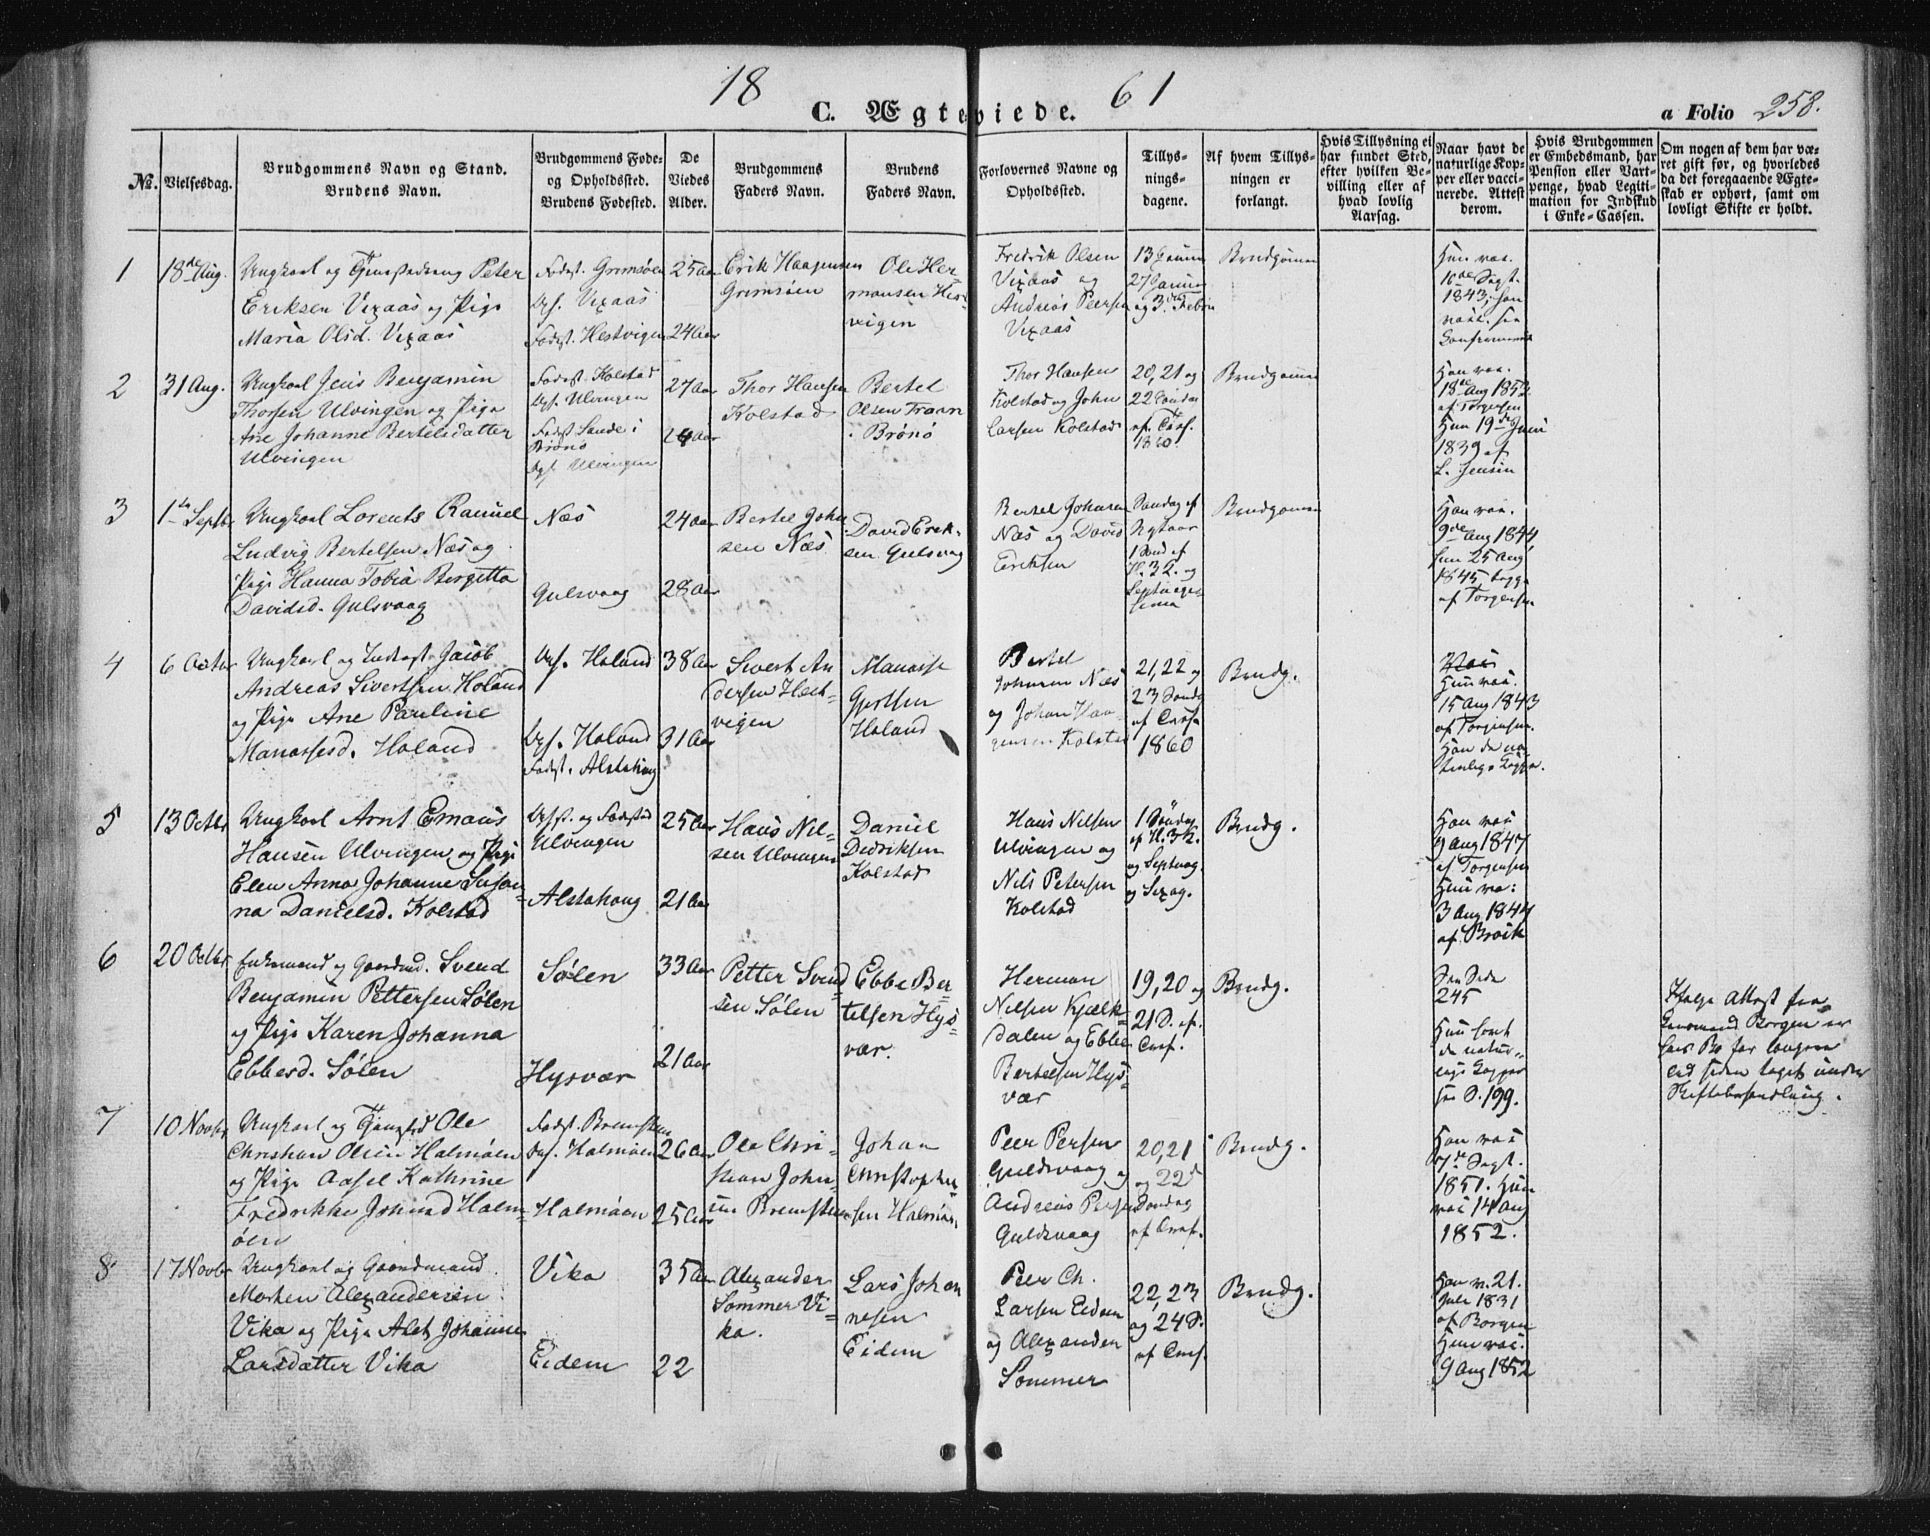 18 61
C. Ægteviede.
a Folio 258.
No.
Vielsesdag.
Brudgommens Navn og Stand.
Brudens Navn.
Brudgommens Føde-
og Opholdssted.
Brudens Fødested.
De
Viedes
Alder.
Brudgommens
Faders Navn.
Brudens
Faders Navn.
Forlovernes Navne og
Opholdssted.
Tillys-
nings-
dagene.
Af hvem Tillys-
ningen er
forlangt.
Hvis Tillysning ei
har fundet Sted,
efter hvilken Be-
villing eller af
hvad lovlig
Aarsag.
Naar havt de
naturlige Kop-
per eller vacci-
nerede. Attest
derom.
Hvis Brudgommen
er Embedsmand, har
Pension eller Vart-
penge, hvad Legiti-
mation for Indskud
i Enke-Cassen.
Om nogen af dem har væ-
ret gift før, og hvorledes
da det foregaaende Ægte-
skab er ophørt, samt om
lovligt Skifte er holdt.
1
18de Aug.
Ungkarl og Peter
Eriksen Vixaas og Pige
Maria Olsd. Vixaas
Fødest. Grimsøen
Ops. Vixaas
Fødest. Hestvigen
25 Aar
24 Aar
Erik Haagensen
Grimsöen
Ole Her
mansen Hest-
vigen
Fredrik Olsen
Vixaas og
Andreas Peersen
Vixaas
13 Januar
27 Januar
og 3de Febr.
Brudgommen
Hun vac.
10de Sept.
1843, han
vacc. see
Confirmerede
2
31 Aug.
Ungkarl Jens Benjamin
Thorsen Ulvingen og Pige
Ane Johanne Bertelsdatter
Ulvingen
Fødest. Kolstad
Ops. Ulvingen
Fødest. Sande i
Brönö
Ops. Ulvingen
27 Aar
24 Aar
Thor Hansen
Kolstad
Bertel
Olsen
i Brönö
Thor Hansen
Kolstad og John
Larsen Kolstad
20, 21 og
22 Søndag
ef. Tref.
1860.
Brudgommen
Han vac.
18de Aug 1852
af Torgersen
Hun 19de Juni
1839 af
L. Jensen
3
1ste Septbr
Ungkarl Lorents
Ludvig Bertelsen Næs og
Pige Hanna Tobia Bergitta
Davidsd. Gulsvaag
Næs
Gulsvaag
24 Aar
28 Aar
Bertel John
sen Næs
David Erik-
sen Gulsvaag
Bertel Johnsen
Næs og David
Eriksen
Søndag ef.
Nytaar
1 Sønd ef
H. 3 K. og
Septuages-
sima
Brudgommen
Han vac.
9de Aug 1844,
hun 25 Aug
1845, begge
af Torgersen
4
6 Octbr
Ungkarl og Indergst. Jacob
Andreas Sivertsen Holand
og Pige Ane Pauline
Manassesd. Holand
Ops. Holand
Ops. Holand
Fødest. Alstahoug
38 Aar
31 Aar
Sivert An
dersen Hest-
vigen
Manasse
Gjertsen
Holand
Bertel
Johnsen Næs
og Johan Haa-
gensen Kolstad
21, 22 og
23 Søndg
ef Tref
1860
Brudg.
Hun vac.
15 Aug 1843
af Torgersen.
Han de na-
turlige Kopper.
5
13 Octbr
Ungkarl Arnt Emaus
Hansen Ulvingen og Pige
Elen Anna Johanne Susan-
na Danielsd. Kolstad
Opst. og Fødested
Ulvingen
Alstahoug
25 Aar
21 Aar
Hans Nil-
sen Ulvingen
Daniel
Dedriksen
Kolstad
Hans Nilsen
Ulvingen og
Nils Petersen
Kolstad
1 Söndag
ef H. 3 K.
og Septuag.
og Sexag.
Brudg.
Han vac
9 Aug 1847
af Torgersen
Hun vac:
3 Aug 1847
af Brock
6
20 Octbr
Enkemand og Gaardmd. Svend
Benjamin Pettersen Sølen
og Pige Karen Johanna
Ebbesd. Sølen
Sølen
Hysvær
33 Aar
21 Aar
Petter Svend
sen Sølen
Ebbe Ber-
telsen Hys-
vær.
Herman
Nilsen Kjælk-
dalen og Ebbe
Bertelsen Hys-
vær
19, 20 og
21 S. ef.
Tref.
Brudg.
See Side
245
Hun havt
de natur-
lige Kopper
see S. 199.
Ifølge Attest fra
Lensmand Borgen er
hans Bo for længere
tid siden taget under
Skiftebehandling.
7
10 Novbr
Ungkarl og Ole
Christian Olsen Halmöen
og Pige Aasel Kathrine
Fredrikke Johnsd Halm-
öen
Fødest. Bremsten
Ops. Halmöen
Halmöen
26 Aar
25 Aar
Ole Chri-
stian John-
sen Bremsten
Johan
Christopher-
sen Halmöen
Peer Persen
Guldsvaag og
Andreas Persen
Guldsvaag
20, 21
og 22
Søndag
ef. Tref.
Brudg.
Han vac
7de Sept.
1851. Hun
vac 14 Aug
1852.
8
17 Novbr
Ungkarl og Gaardmand
Morten Alexandersen
Vika og Pige Alet Johanne
Larsdatter Vika
Vika
Eidem
35 Aar
22
Alexander
Sommer Vi-
ka.
Lars Johan
nesen
Eidem
Peer Ch.
Larsen Eidem
og Alexander
Sommer
22, 23
og 24 S.
ef Tref.
Brudg.
Han v. 21.
Juli 1831
af Borgen
Hun vac.
9 Aug 1852